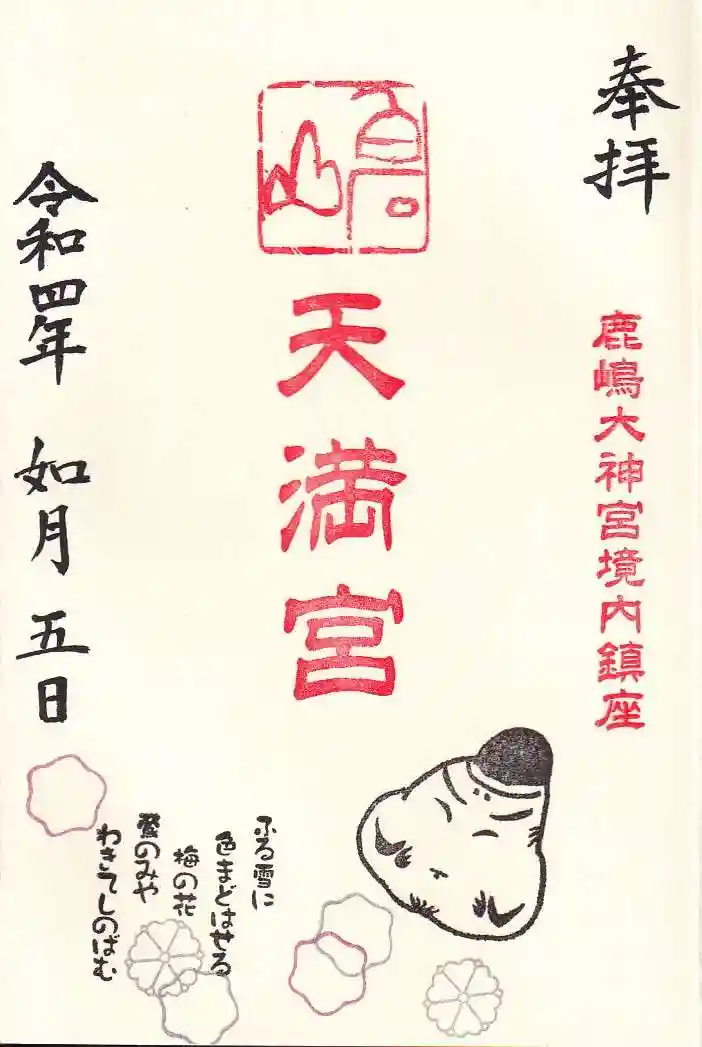 奉拝
鹿嶋大神宮境内鎮座
嶋
天満宮
令和四年 如月 五日
ふる雪に
色まどはせる
梅の花
鶯のみや
わきてしのばむ